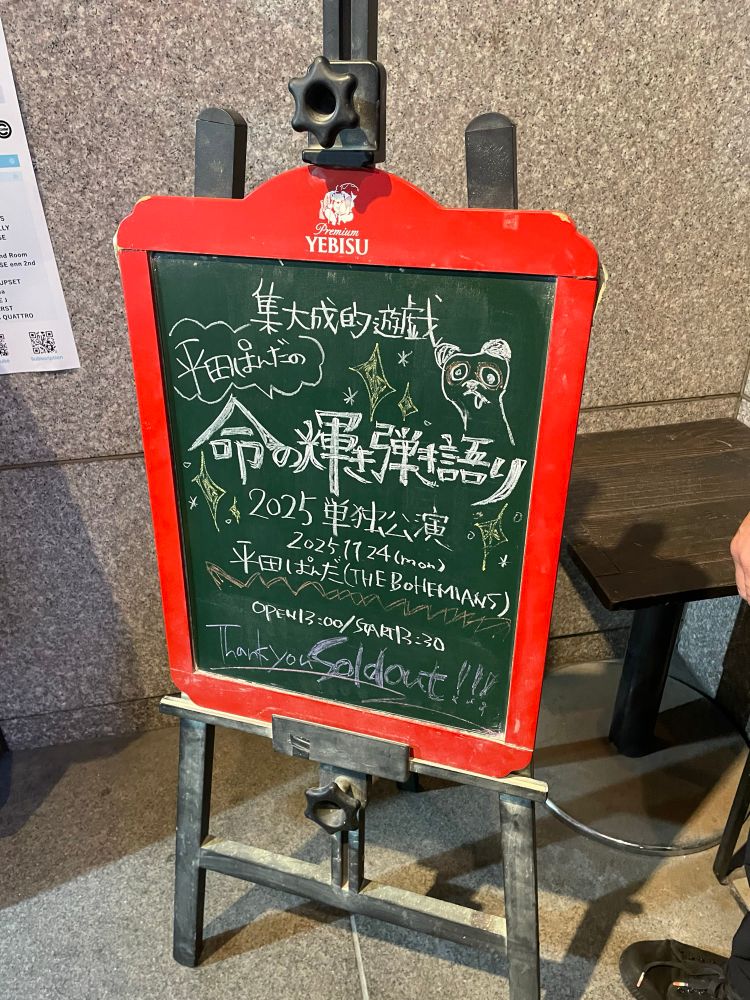 Premium
YEBISU
集大成的遊戯
平田ぱんだの
命の輝き弾き語り
2025単独公演
2025.11.24(mon)
平田ぱんだ(THE BOHEMIANS)
OPEN13:00/START13:30
Thank you Sold out!!!
nd Room
SE enn 2nd
UPSET
QUATTRO
Subscription